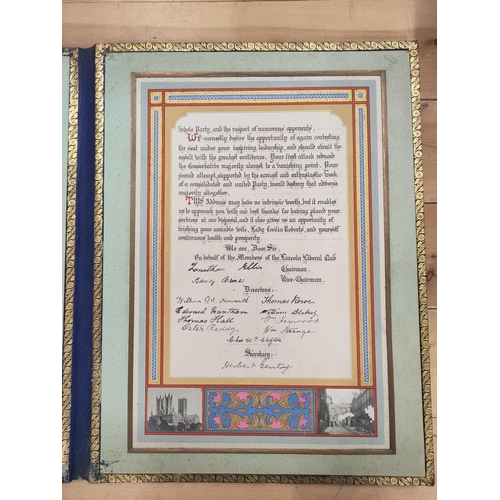 whole Party, and the respect of numerous opponents.
We earnestly desire the opportunity of again contesting
the seat under your inspiring leadership, and should await the
result with the greatest confidence. Your first attack reduced
the Conservative majority almost to a vanishing point. Your
second attempt, supported by the earnest and enthusiastic work
of a consolidated and united Party, would destroy that adverse
majority altogether.
This Address may have no intrinsic worth, but it enables
us to approach you with our best thanks for having placed your
services at our disposal, and it also gives us an opportunity of
wishing your amiable wife, Lady Cecilia Roberts, and yourself
continuous health and prosperity.
We are, Dear Sir,
On behalf of the Members of the Lincoln Liberal Club
Jonathan Ellis Chairman.
Vice-Chairman.
Directors:-
William Thomas Rowe
Edward Frantham William Blakey
Thomas Hall Wm Atwood
Peter Reddy Wm Range
Chas Wm
Secretary:-
Herbert Gentry